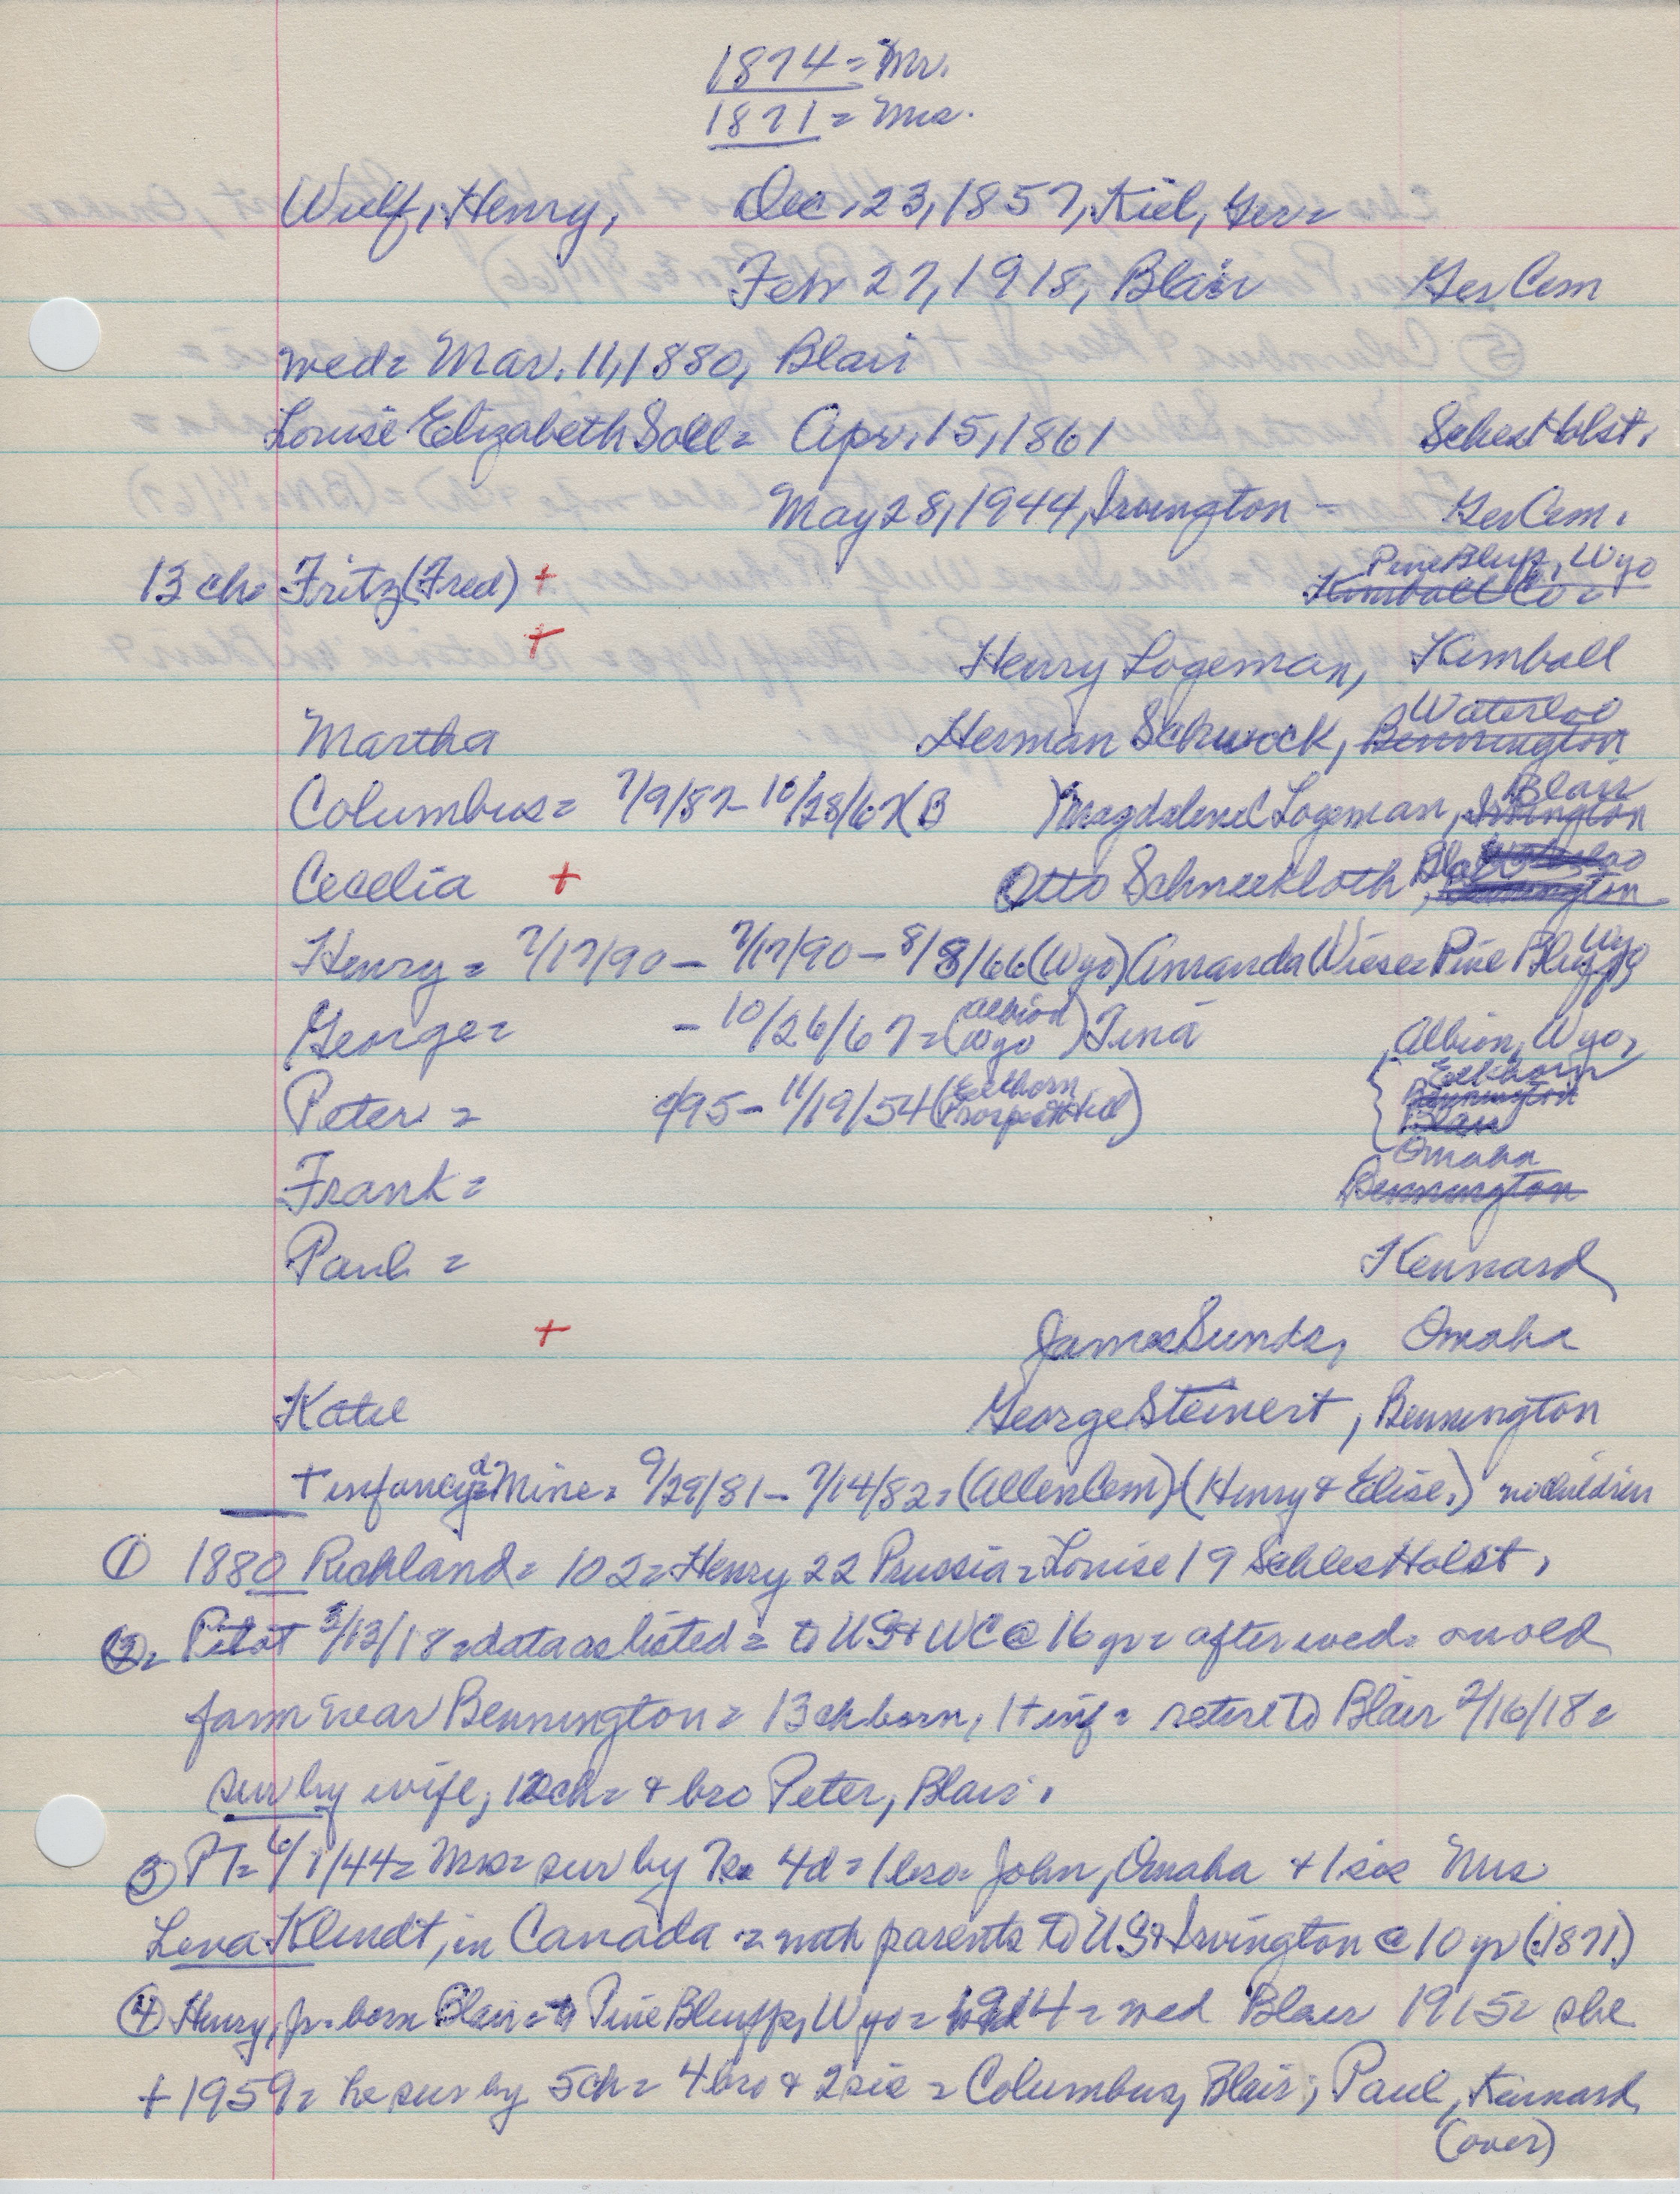 1874 = Mr.
1871 = Mrs.
Wulf, Henry, Dec. 23, 1857, Kiel, Ger =
Feb 27, 1918, Blair Ger Cem
wed = Mar. 11, 1880, Blair
Louise Elizabeth Soll = Apr. 15, 1861 Schles Holst.
May 28, 1944, Irvington - Ger Cem.
Pine Bluff, Wyo
13 ch = Fritz (Fred) + Kimball Co =
+ Henry Logeman, Kimball
Waterloo
Martha Herman Schwock, Bennington
Blair
Columbus = 7/9/87 - 10/28/67 (B Magdalene Logeman, Irvington
Cecelia + Otto Schneekloth, Bla Waterloo
Bennington
Henry = 7/17/90 - 7/17/90 - 8/8/66 (Wyo) Amanda Wiese = Pine Bluffs Wyo
George = - 10/26/67 = (Albion Wyo) Tina Albion, Wyo,
Peter = 95 - 11/19/54 (Elkhorn Prospect Hill) { Elkhorn
Bennington
Blair
Omaha
Frank = Bennington
Paul = Kennard
+ James Sunds, Omaha
Katie George Steinert, Bennington
+ infancy = Mine = 9/29/81 - 7/14/82 = (Allen Cem) (Henry & Elise.) no children
① 1880 Richland = 102 = Henry 22 Prussia = Louise 19 Schles Holst.
② = Pilot 3/13/18 = data as listed = to US & WC @ 16 yr = after wed = on old
farm near Bennington = 13 ch born, 1 + inf = retire to Blair 2/16/18 =
sur by wife, 12 ch = & bro Peter, Blair.
③ PT = 6/1/44 = Mrs = sur by 7s 4d = 1 bro = John, Omaha + 1 sis Mrs
Lena Klindt, in Canada = with parents to US & Irvington @ 10 yr (1871)
④ Henry, Jr = born Blair = to Pine Bluffs, Wyo = 1914 = wed Blair 1915 = she
+ 1959 = he sur by 5 ch = 4 bro & 2 sis = Columbus, Blair; Paul, Kennard,
(over)